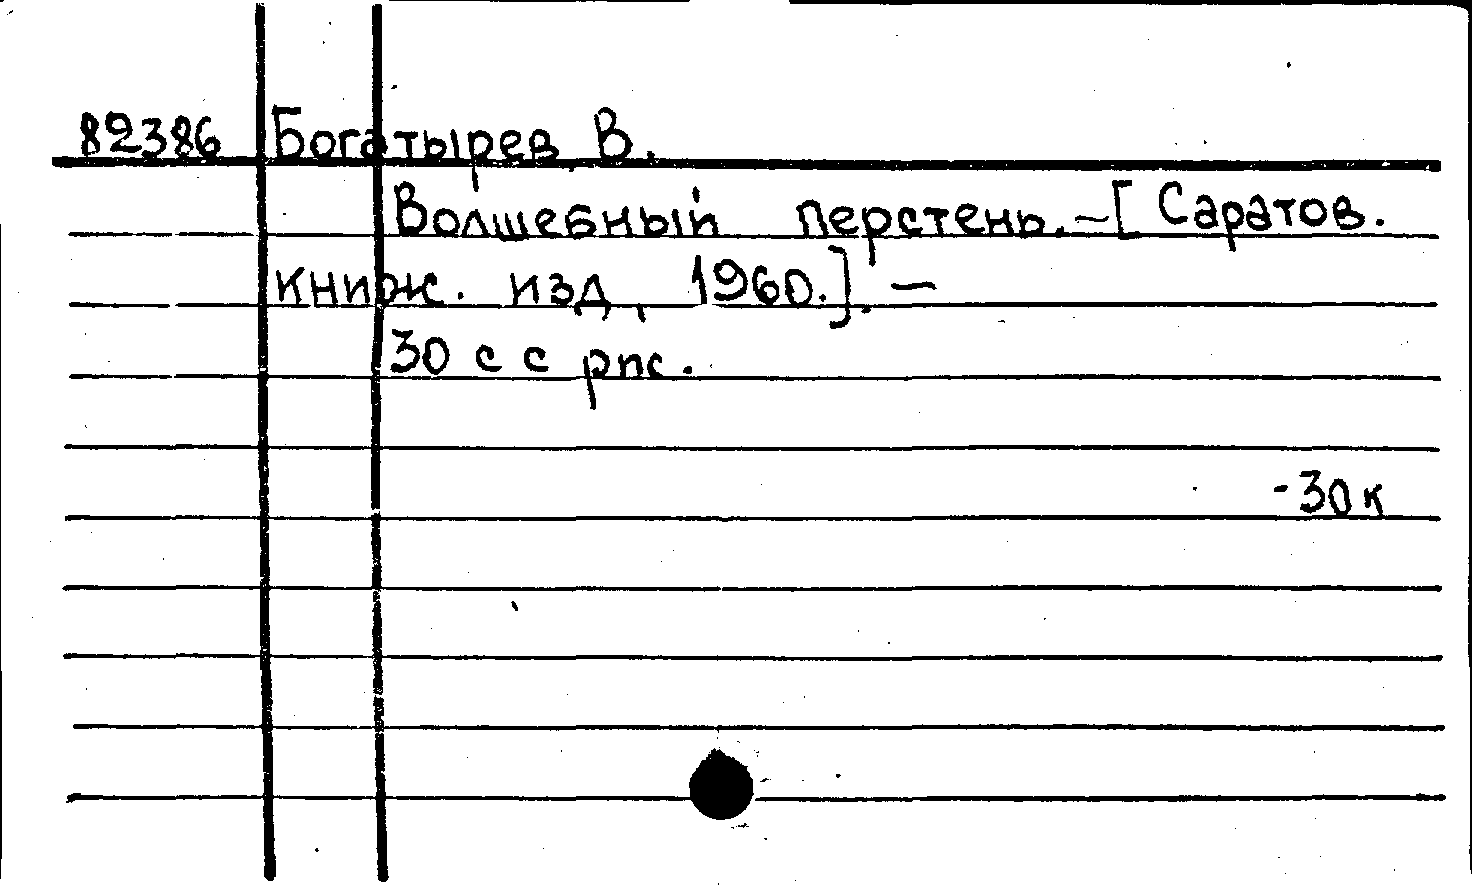 82386 Богатырев В.
Волшебный перстень. - [Саратов.
книж. изд, 1960.]. -
30 с с рис.
- 30 к